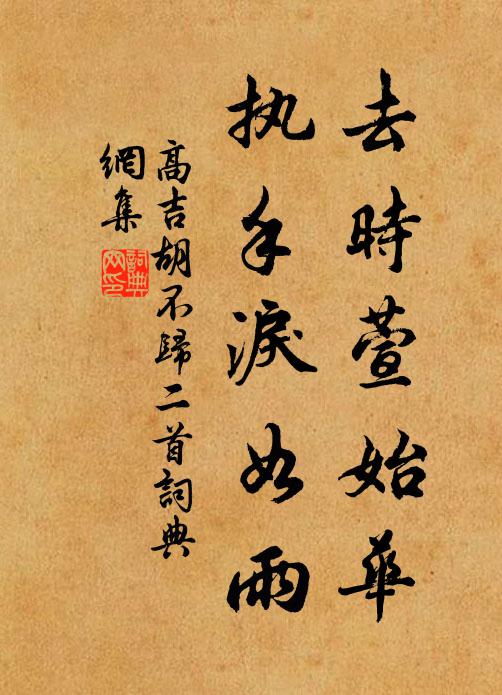 去時萱始華
执手淚如雨
高吉胡不歸二首詞典
網集
詞典
网印